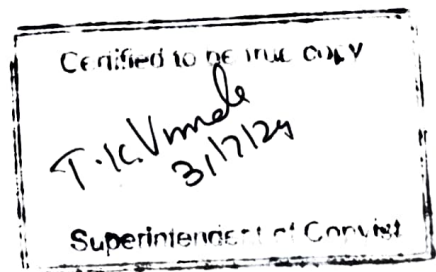 Certified to be true copy
T.K.Vimala
31/7/24
Superintendent of Copyist